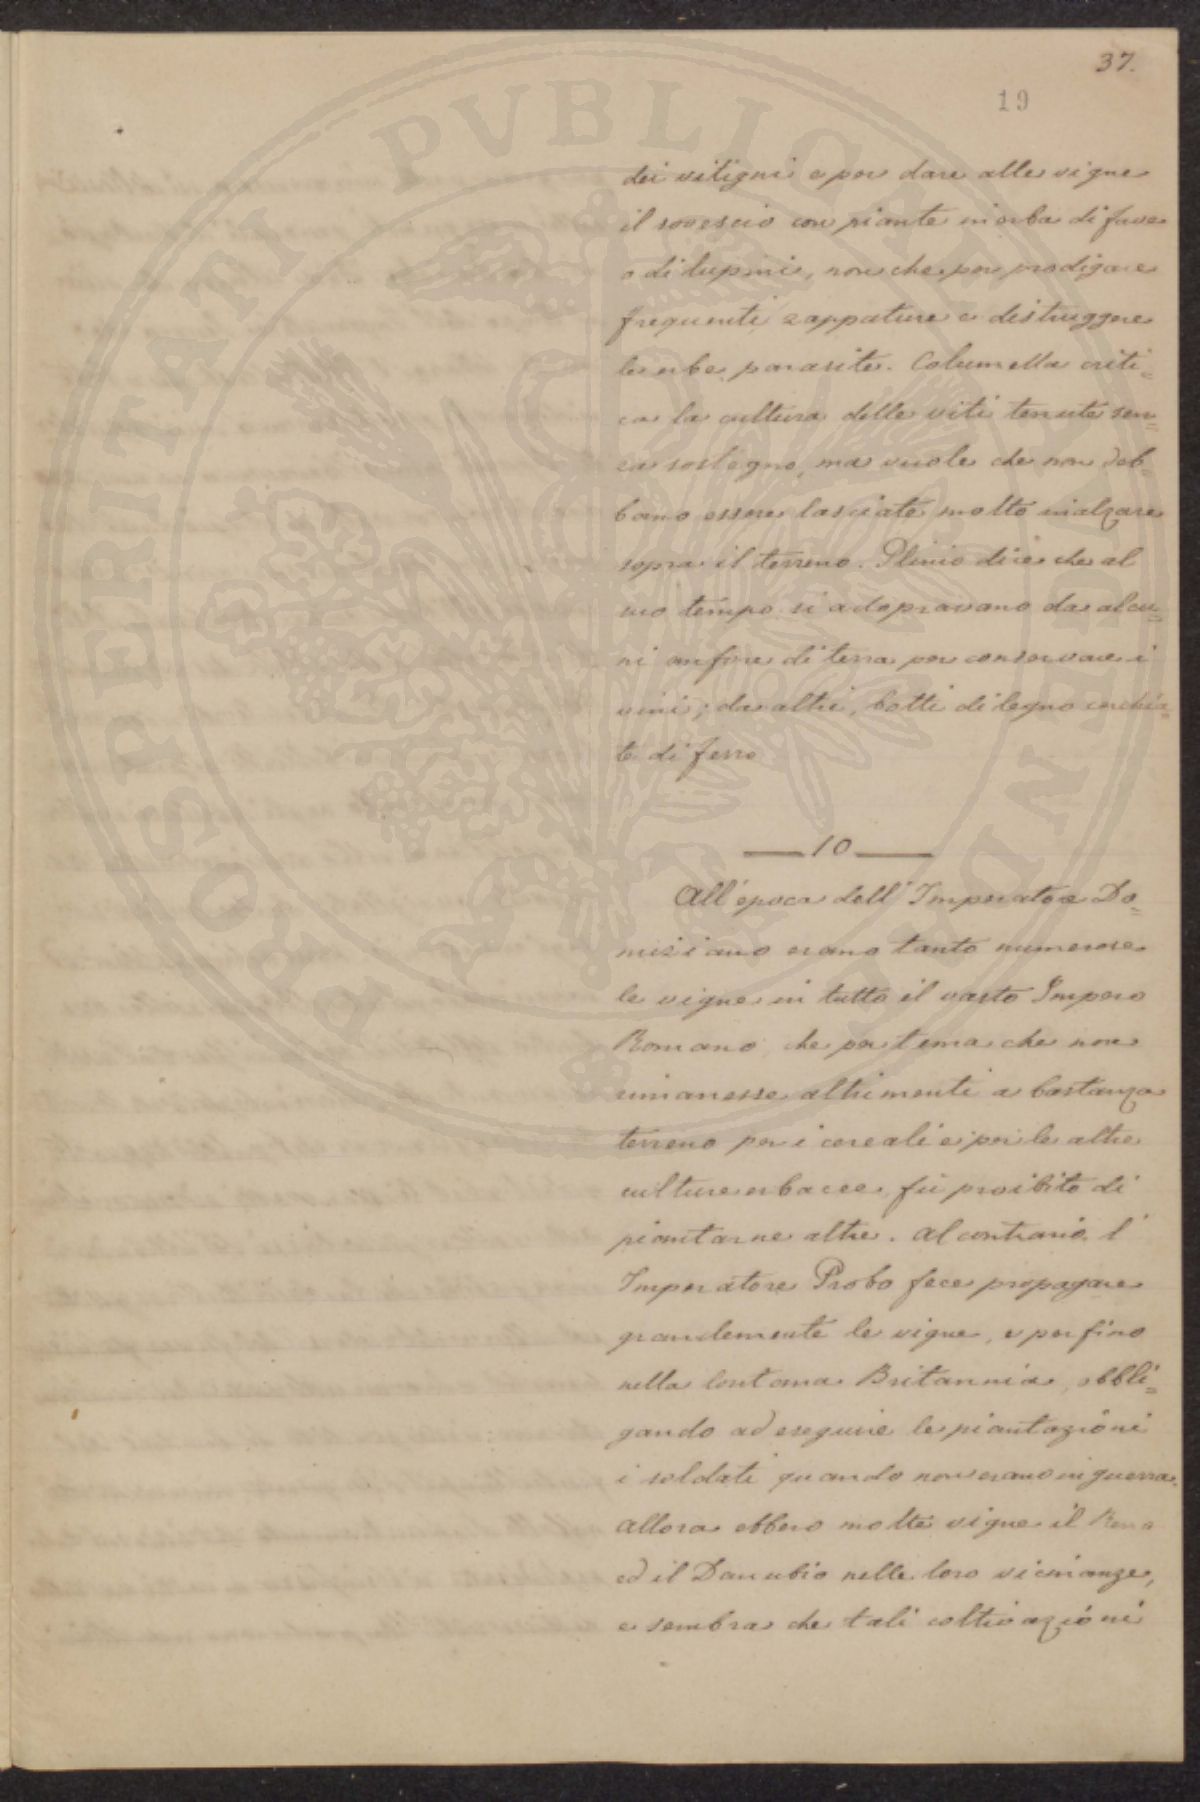 37.
19
dei vitigni e per dare alle vigne
il sovescio con piante in erba di fave
o di lupini, non che per prodigare
frequenti zappature e distruggere
le erbe parasite. Columella criti=
ca la cultura delle viti tenute sen=
za sostegno, ma vuole che non deb=
bano essere lasciate molto inalzare
sopra il terreno. Plinio dice che al
suo tempo si adopravano da alcu=
ni anfore di terra per conservare i
vini; da altri, botti di legno cerchia=
te di ferro
10
All'epoca dell'Imperatore Do=
miziano erano tanto numerose
le vigne in tutto il vasto Impero
Romano, che per tema che non
rimanesse altrimenti a bastanza
terreno per i cereali e per le altre
culture erbacee, fù proibito di
piantarne altre. Al contrario l'
Imperatore Probo fece propagare
grandemente le vigne, e perfino
nella lontana Britannia, obbli=
gando ad eseguire le piantazioni
i soldati quando non erano in guerra.
Allora ebbero molte vigne il Reno
ed il Danubio nelle loro vicinanze,
e sembra che tali coltivazioni
PROSPERITATI PVBLICAE AVGENDAE